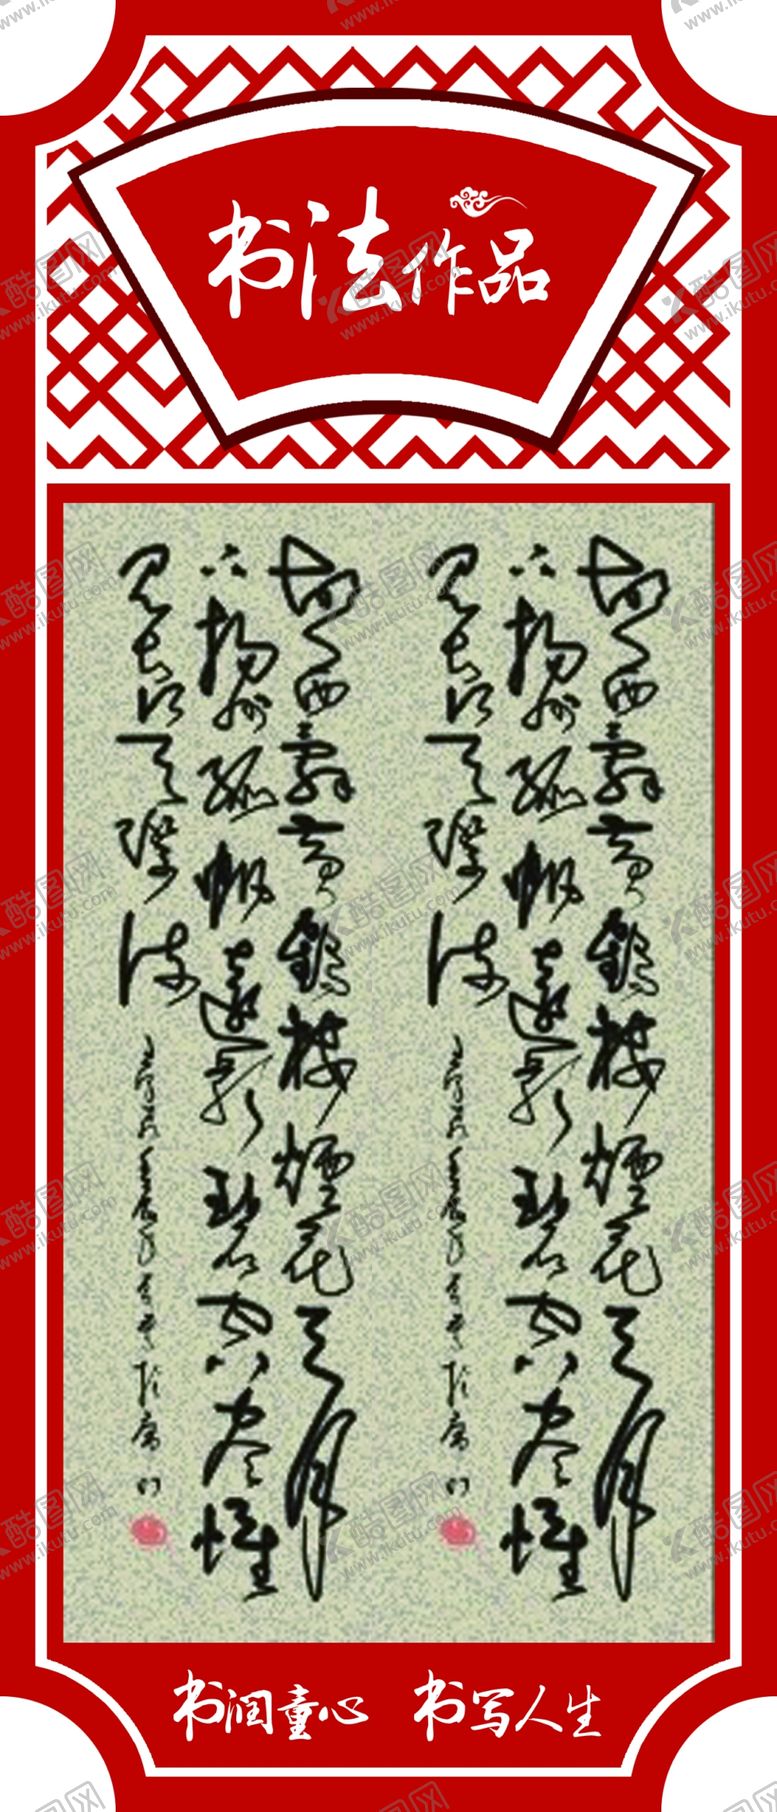 书法作品
故人西辞黄鹤楼煙花三月
下扬州孤帆远影碧空尽惟
见长江天际流
故人西辞黄鹤楼煙花三月
下扬州孤帆远影碧空尽惟
见长江天际流
书润童心 书写人生
酷图网
www.ikutu.com